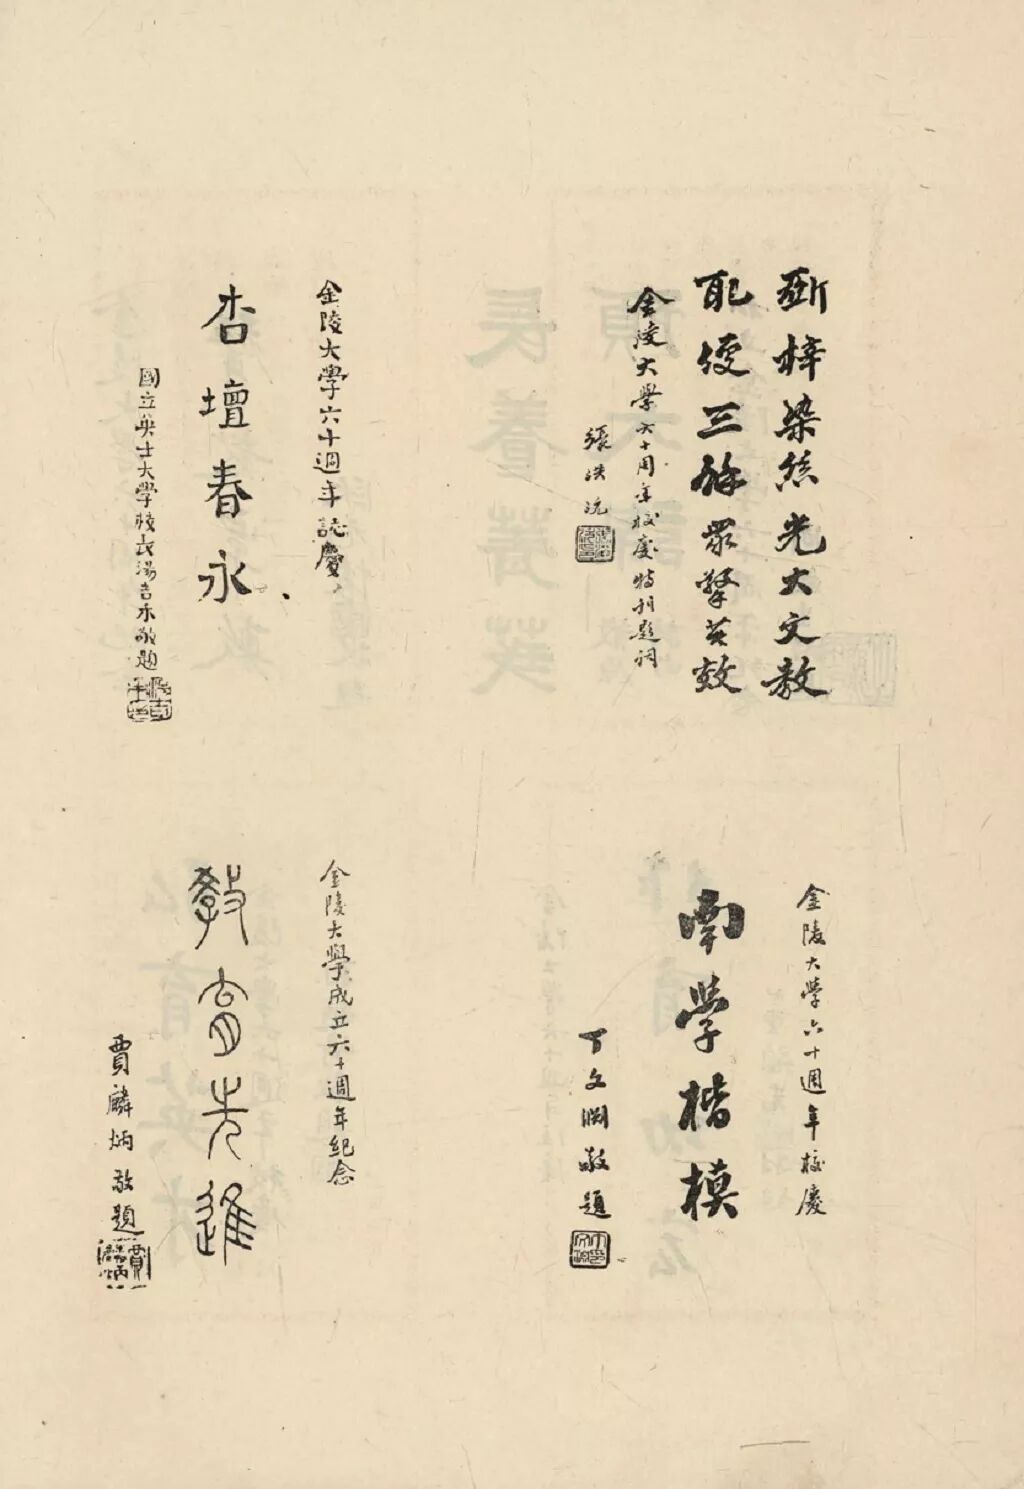 斲梓染絲光大文教
配侵三餘眾擎共效
金陵大學六十周年校慶特刊題詞
張洪沅
金陵大學六十週年誌慶
杏壇春永
國立英士大學校長湯吉禾敬題
金陵大學六十週年校慶
南學楷模
丁文淵敬題
金陵大學成立六十週年紀念
教育先進
賈麟炳敬題